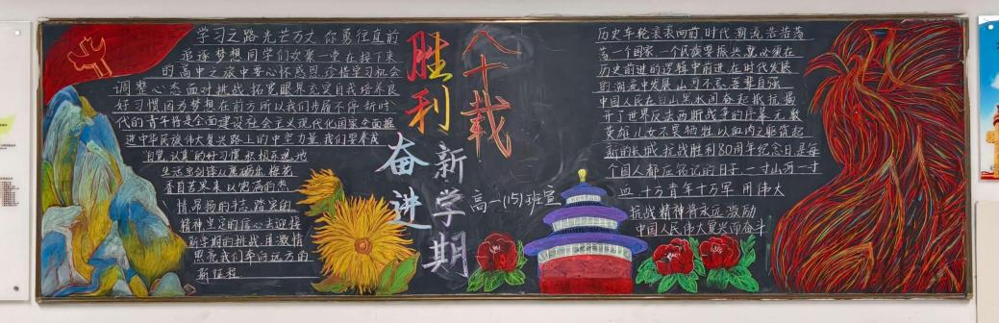 学习之路光芒万丈你勇往直前
追逐梦想同学们欢聚一堂在接下来
的高中之旅中要心怀感恩珍惜学习机会
调整心态面对挑战拓宽眼界充实自我培养良
好习惯因为梦想在前方所以我们步履不停新时
代的青年将是全面建设社会主义现代化国家全面推
进中华民族伟大复兴路上的中坚力量我们要养成
自觉认真的好习惯积极乐观地
生活宝剑锋从磨砺出梅花
香自苦寒来以饱满的热
情昂扬的斗志踏实的
精神坚定的信心去迎接
新学期的挑战且激情
照亮我们奔向远方的
新征程
八十载
胜利
奋进
新学期
高一(15)班宣
历史车轮滚滚向前时代潮流浩浩荡
荡一个国家一个民族要振兴就必须在
历史前进的逻辑中前进在时代发展
的潮流中发展山河不忘吾辈自强
中国人民在白山黑水间奋起抵抗揭
开了世界反法西斯战争的序幕无数
英雄儿女不畏牺牲以血肉之躯筑起
新的长城抗战胜利80周年纪念日是每
个国人都应铭记的日子一寸山河一寸
血十万青年十万军用伟大
抗战精神将永远激励
中国人民伟大复兴而奋斗